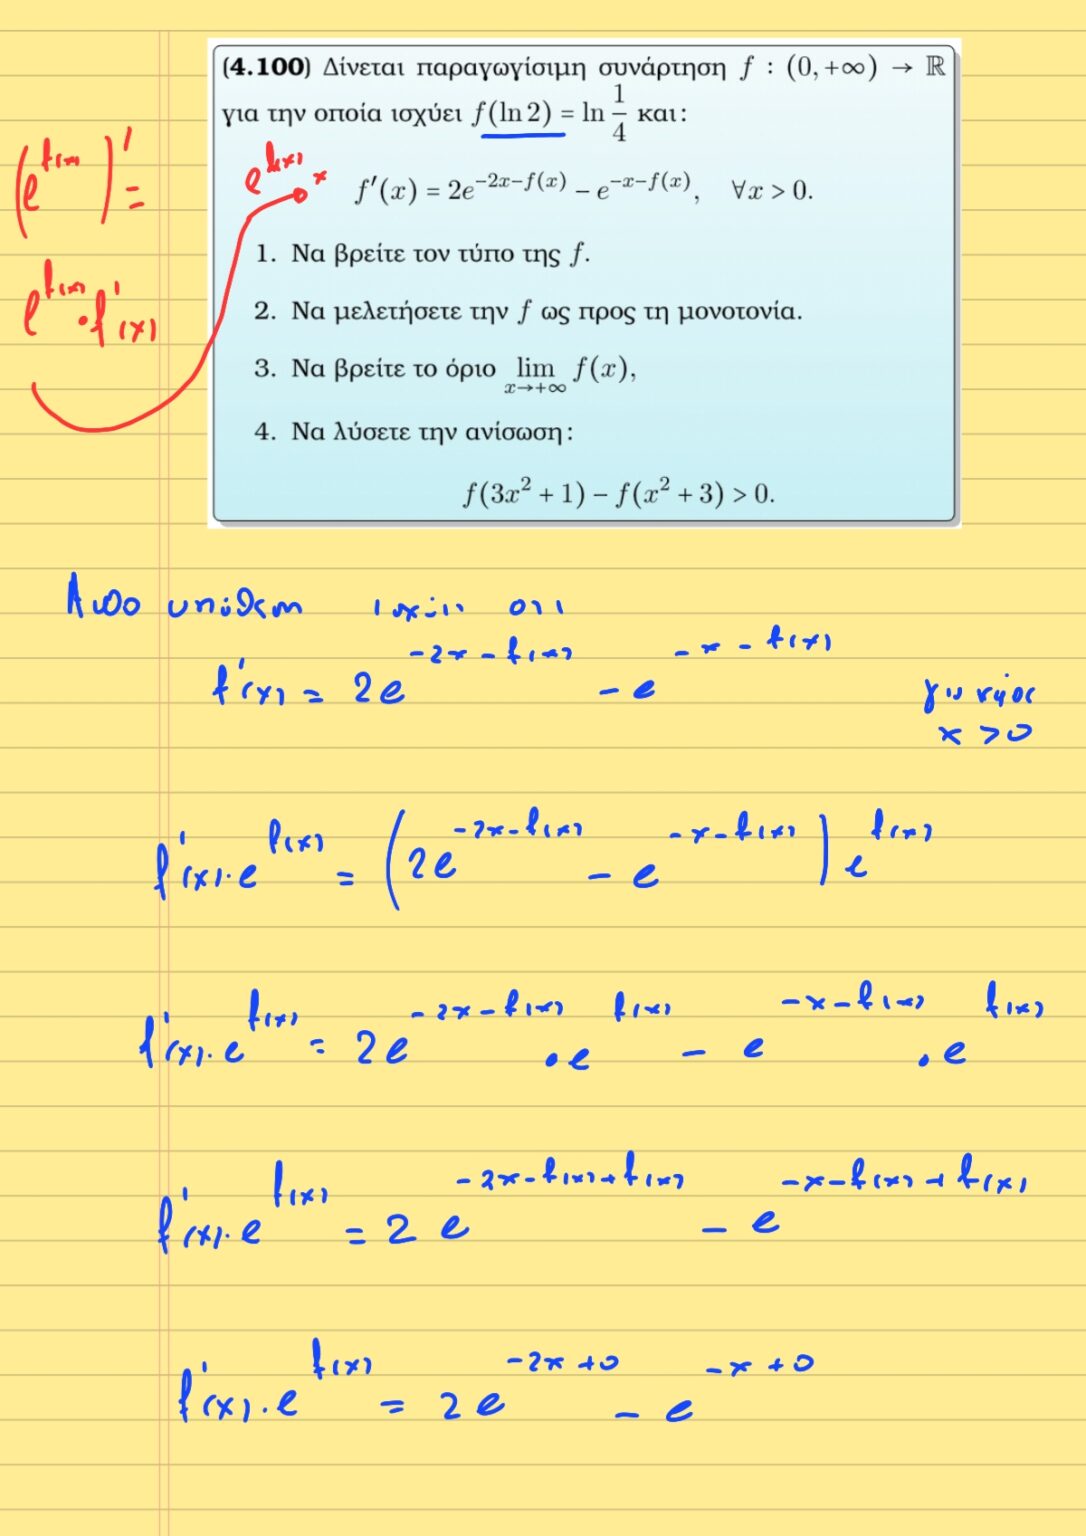 (4.100) Δίνεται παραγωγίσιμη συνάρτηση f : (0, +∞) → ℝ
για την οποία ισχύει f(ln 2) = ln 1/4 και:
f'(x) = 2e^{-2x-f(x)} − e^{-x-f(x)}, ∀x > 0.
1. Να βρείτε τον τύπο της f.
2. Να μελετήσετε την f ως προς τη μονοτονία.
3. Να βρείτε το όριο lim_{x→+∞} f(x),
4. Να λύσετε την ανίσωση:
f(3x² + 1) − f(x² + 3) > 0.
e^{f(x)} x
(e^{f(x)})' =
e^{f(x)} · f'(x)
Απο υπόθεση ισχύει οτι
f'(x) = 2e^{-2x-f(x)} - e^{-x-f(x)}
για κάθε
x > 0
f'(x)·e^{f(x)} = (2e^{-2x-f(x)} - e^{-x-f(x)}) e^{f(x)}
f'(x)·e^{f(x)} = 2e^{-2x-f(x)} · e^{f(x)} - e^{-x-f(x)} · e^{f(x)}
f'(x)·e^{f(x)} = 2e^{-2x-f(x)+f(x)} - e^{-x-f(x)+f(x)}
f'(x)·e^{f(x)} = 2e^{-2x+0} - e^{-x+0}